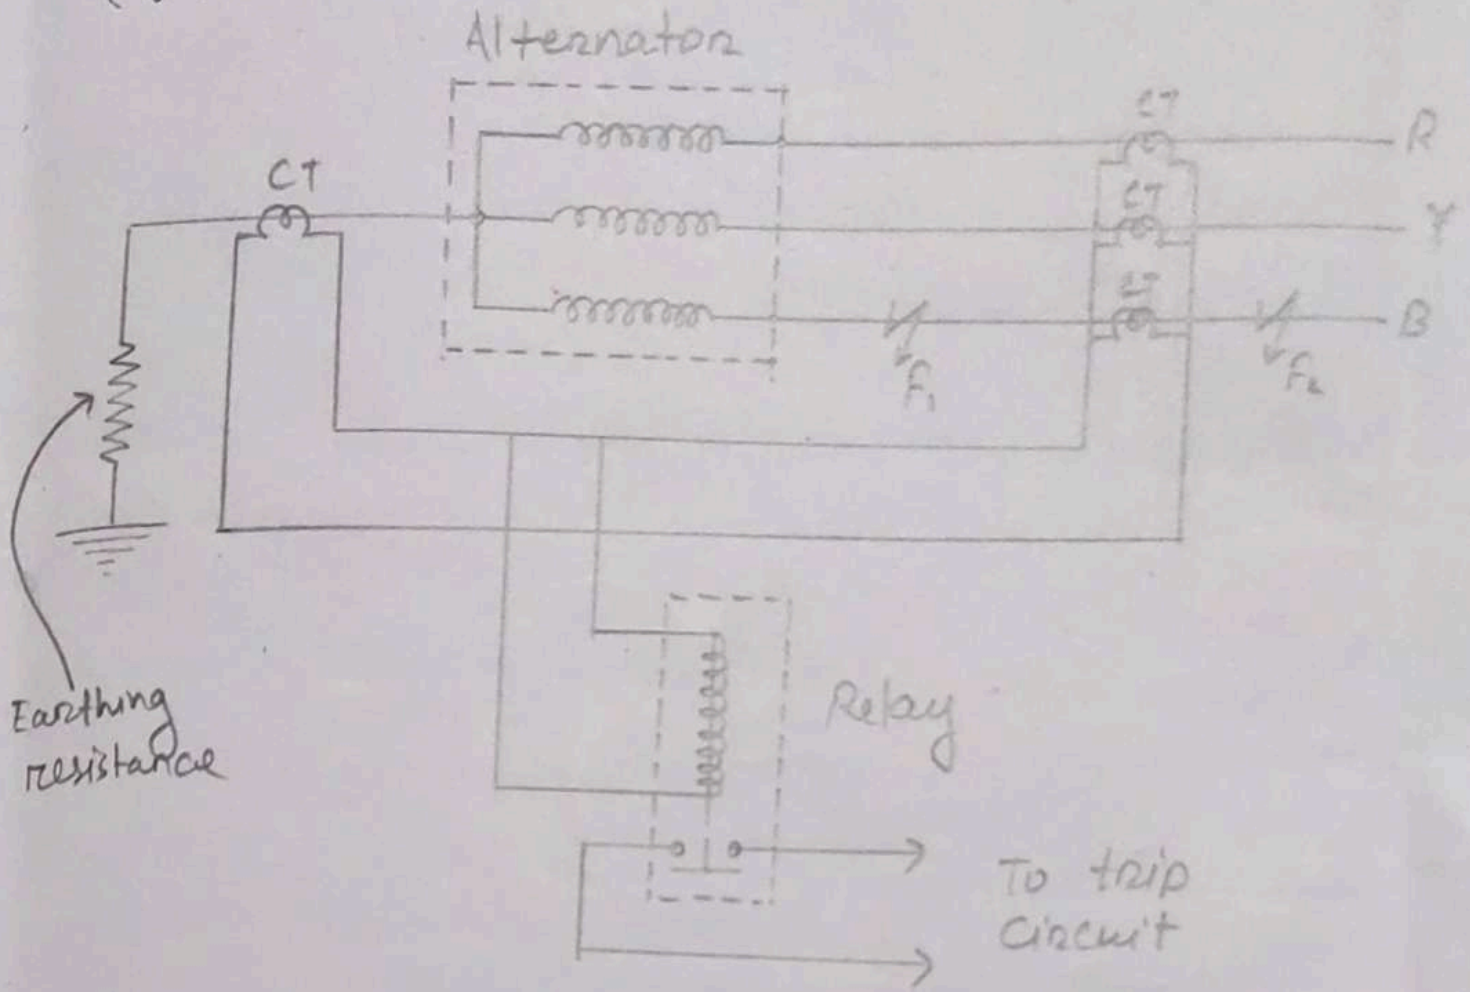 Alternator
CT
R
CT
CT
Y
CT
B
F₁
F₂
Earthing
resistance
Relay
To trip
Circuit